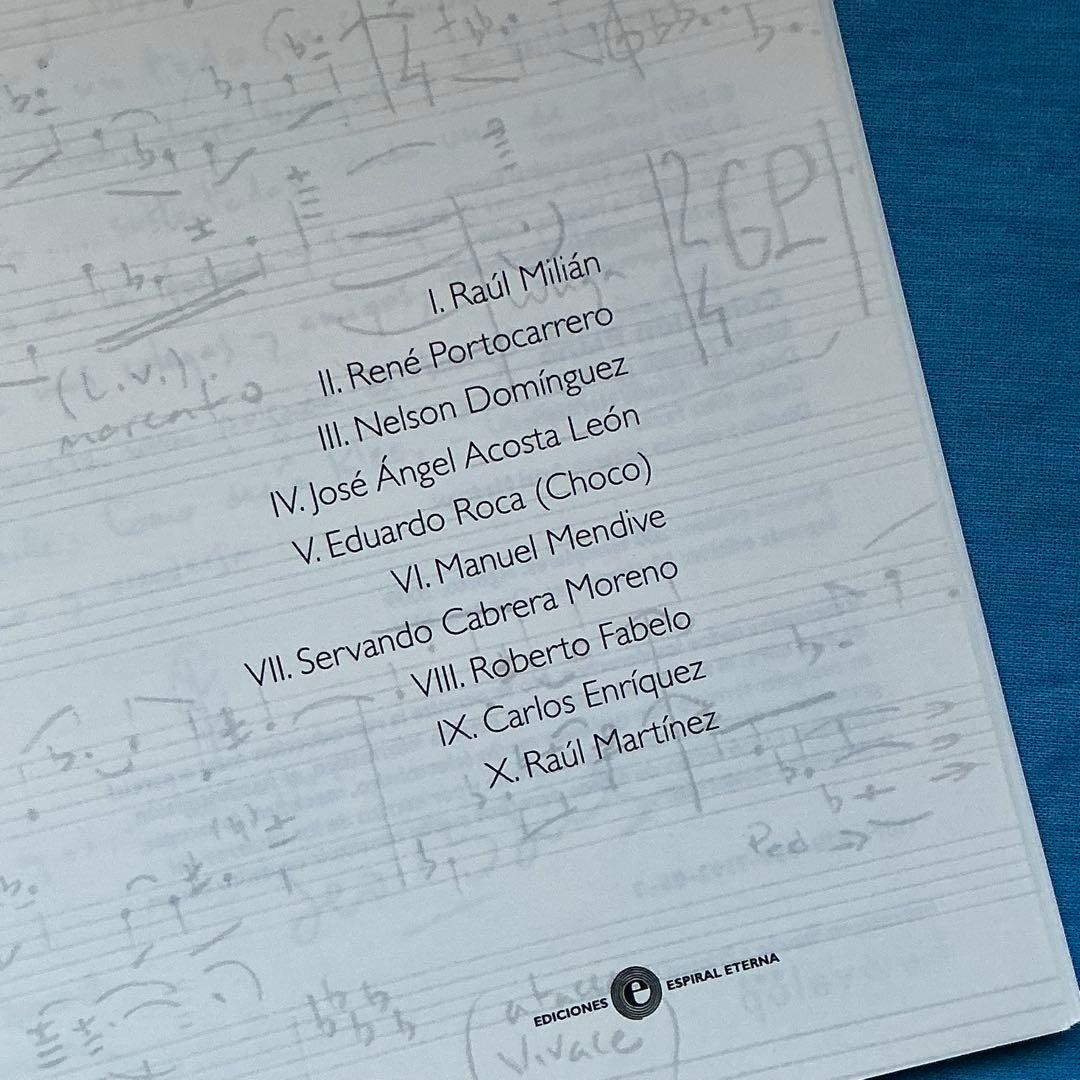 2
4
GP
4
(l.v.)
marcato
I. Raúl Milián
II. René Portocarrero
III. Nelson Domínguez
IV. José Ángel Acosta León
V. Eduardo Roca (Choco)
VI. Manuel Mendive
VII. Servando Cabrera Moreno
VIII. Roberto Fabelo
IX. Carlos Enríquez
X. Raúl Martínez
Ped
EDICIONES e ESPIRAL ETERNA
Vivace